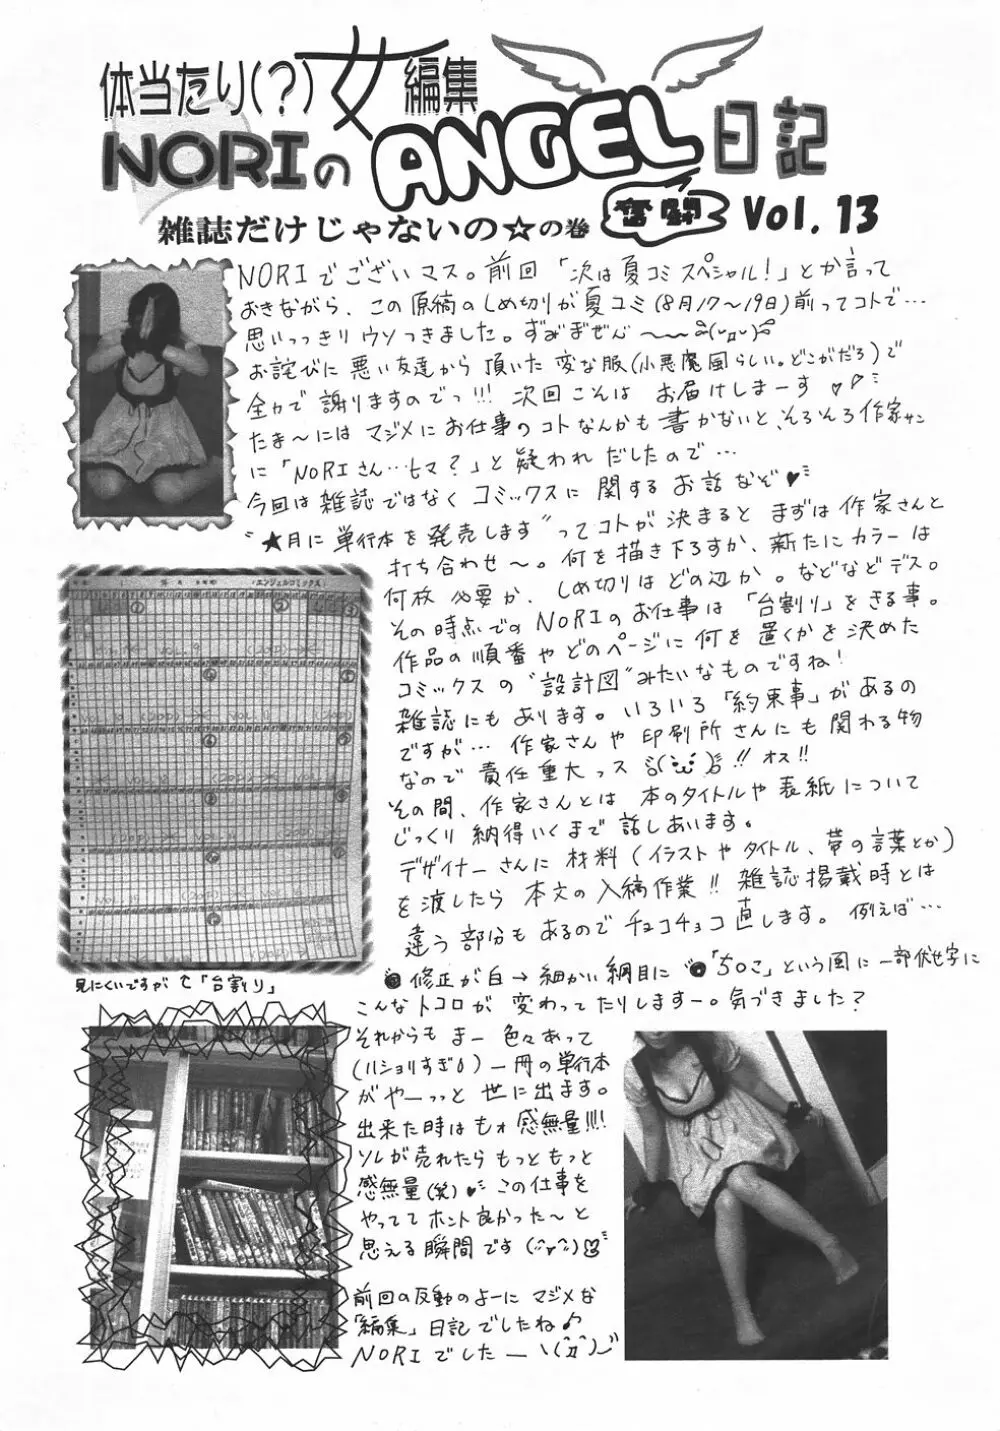 体当たり(?)女編集
NORIのANGEL日記
奮闘
Vol.13
雑誌だけじゃないの☆の巻
NORIでございマス。前回「次は夏コミスペシャル!」とか言って
おきながら、この原稿のしめ切りが夏コミ(8月17〜19日)前ってコトで…
思いっっきりウソつきました。ずみまぜん〜〜
お詫びに悪い友達から頂いた変な服(小悪魔風らしい。どこがだろ)で
全力で謝りますのでっ!!! 次回こんは お届けしまーす♥
たま〜にはマジメにお仕事のコトなんかも書かないと、そろそろ作家サン
に「NORIさん…ヒマ?」と疑われだしたので…
今回は雑誌ではなくコミックスに関するお話なぞ♥
"★月に単行本を発売します"ってコトが決まるとまずは作家さんと
打ち合わせ〜。何を描き下ろすか、新たにカラーは
何枚必要か、しめ切りはどの辺か。などなどデス。
その時点でのNORIのお仕事は「台割り」をきる事。
作品の順番やどのページに何を置くかを決めた
コミックスの"設計図"みたいなものですね!
雑誌にもあります。いろいろ「約束事」があるの
ですが… 作家さんや印刷所さんにも関わる物
なので責任重大っス !! オス!!
その間、作家さんとは本のタイトルや表紙について
じっくり納得いくまで話しあいます。
デザイナーさんに材料(イラストやタイトル、帯の言葉とか)
を渡したら本文の入稿作業!! 雑誌掲載時とは
違う部分もあるのでチョコチョコ直します。例えば…
●修正が白→細かい網目に ●「ち○こ」という風に一部伏せ字に
こんなトコロが変わってたりしますー。気づきました?
エンジェルコミックス
見にくいですが↑「台割り」
それからもまー色々あって
(ハショリすぎ)一冊の単行本
がやーっっと世に出ます。
出来た時はもォ感無量!!!
ソレが売れたらもっともっと
感無量(笑)♥ この仕事を
やっててホント良かった〜と
思える瞬間です
前回の反動のよーにマジメな
「編集」日記でしたね♪
NORIでしたー